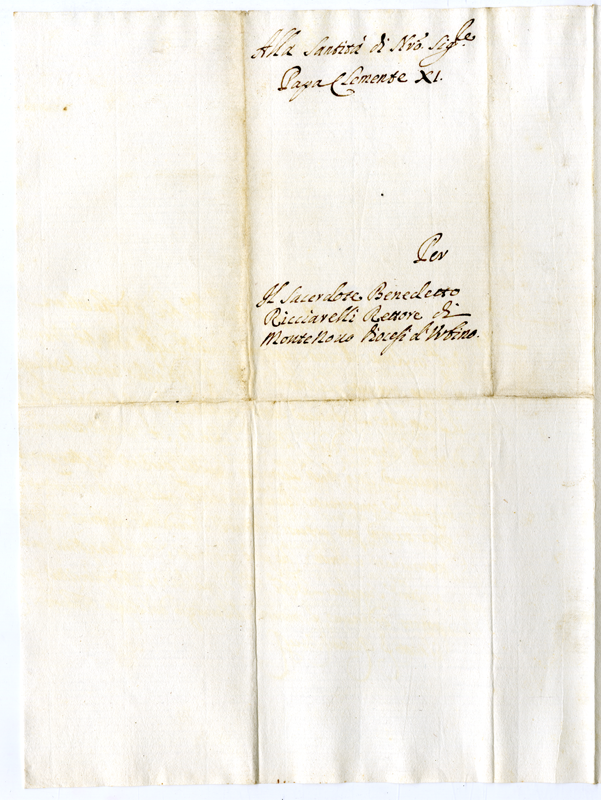 Alla Santità di Nrõ. Sig.re
Papa Clemente XI.
Per
Il Sacerdote Benedetto
Ricciarelli Rettore di
MonteNouo Diocesi d'Urbino.